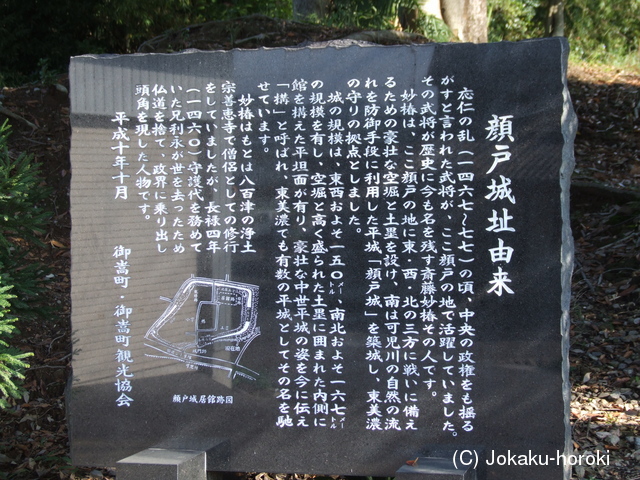 顔戸城址由来
応仁の乱(一四六七~七七)の頃、中央の政権をも揺る
がすと言われた武将が、ここ顔戸の地で活躍していました。
その武将が歴史に今も名を残す斎藤妙椿その人です。
妙椿は、ここ顔戸の地に東・西・北の三方に戦いに備え
るための豪壮な空堀と土塁を設け、南は可児川の自然の流
れを防御手段に利用した平城「顔戸城」を築城し、東美濃
の守りの拠点としました。
城の規模は、東西およそ一五〇メートル、南北およそ一六七メートル
の規模を有し、空堀と高く盛られた土塁に囲まれた内側に
館を構えた平坦面が有り、豪壮な中世平城の姿を今に伝え
「構」と呼ばれ、東美濃でも有数の平城としてその名を馳
せています。
妙椿はもとは八百津の浄土
宗善恵寺で僧侶としての修行
をしていましたが、長禄四年
(一四六〇)守護代を務めて
いた兄利永が世を去ったため
仏道を捨て、政界に乗り出し
頭角を現した人物です。
平成十年十月
御嵩町・御嵩町観光協会
顔戸城居館跡図
(C) Jokaku-horoki